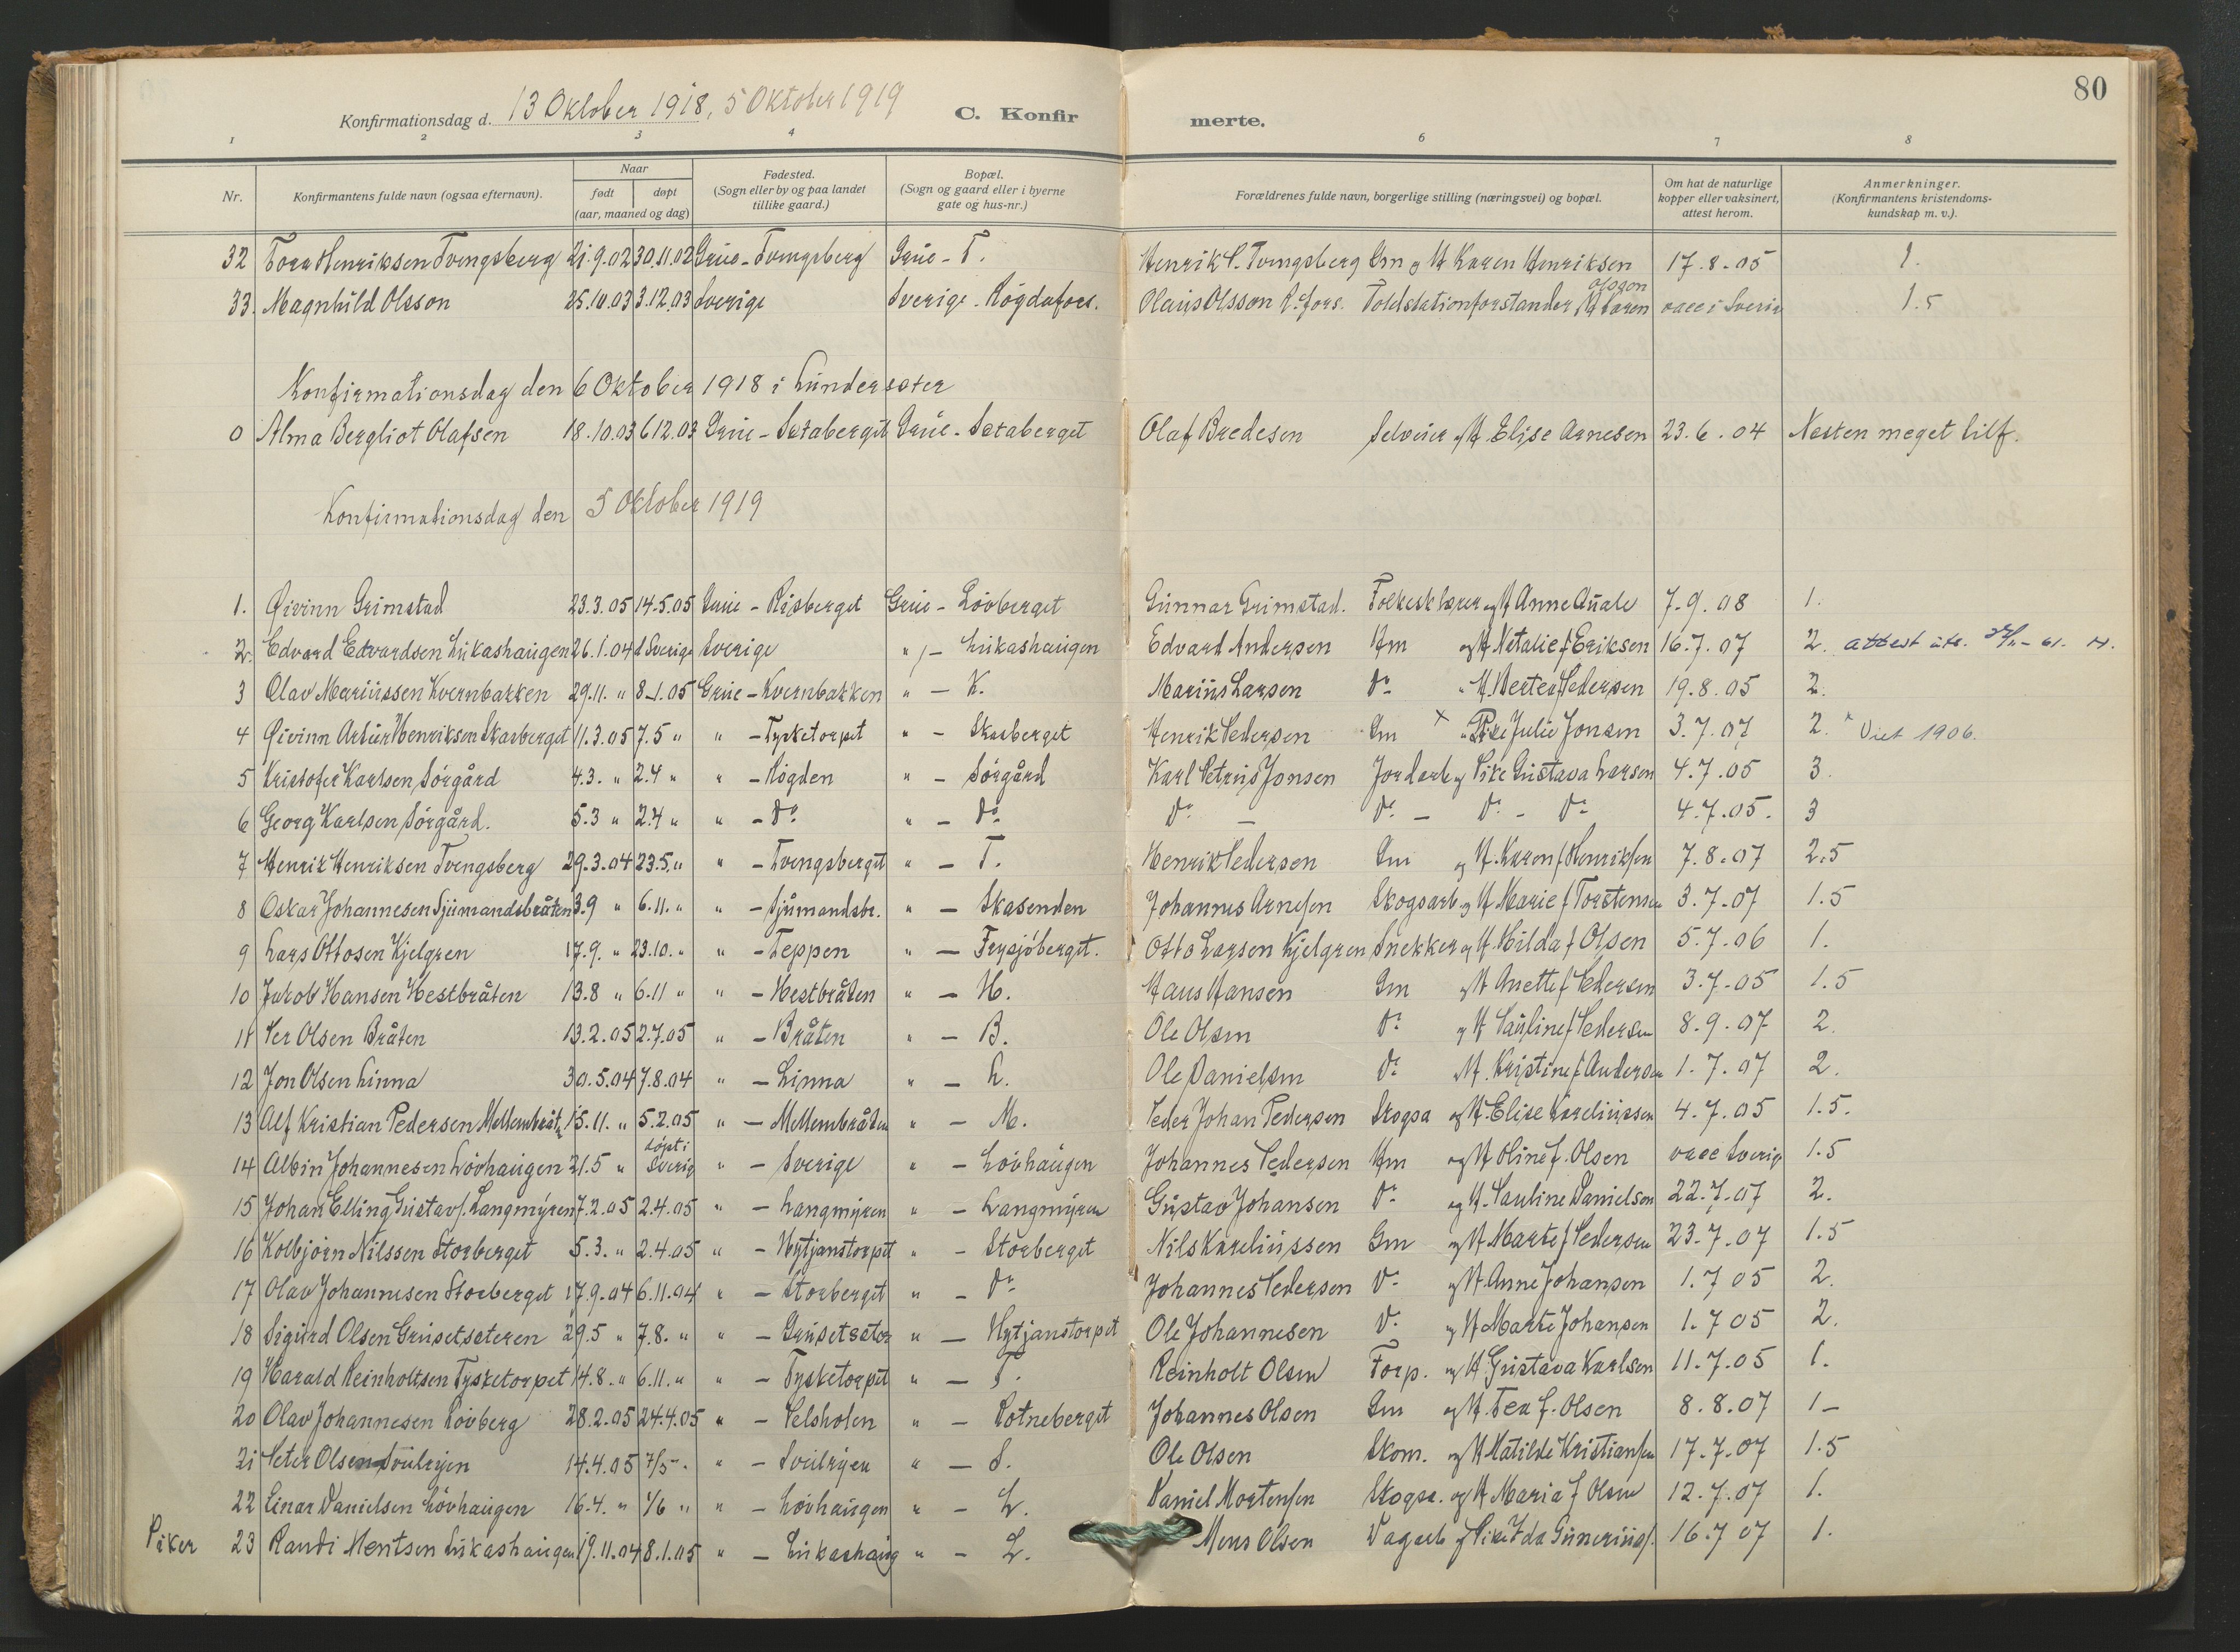 80
Konfirmationsdag d. 13 Oktober 1918, 5 Oktober 1919 C. Konfir merte.
1 2 3 4 6 7 8
Nr. Konfirmantens fulde navn (ogsaa efternavn). Naar født døpt (aar, maaned og dag) Fødested. (Sogn eller by og paa landet tillike gaard.) Bopæl. (Sogn og gaard eller i byerne gate og hus-nr.) Forældrenes fulde navn, borgerlige stilling (næringsvei) og bopæl. Om hat de naturlige kopper eller vaksinert, attest herom. Anmerkninger. (Konfirmantens kristendoms-kundskap m. v.).
32 Tora Henriksen Tvengsberg 21.9.02 30.11.02 Grue - Tvengsberg Grue - T. Henrik P. Tvengsberg Gm og H Karen Henriksen 17.8.05 1.
33. Magnhild Olsson 25.10.03 3.12.03 Sverige Sverige. Rögdafors. Olaus Olsson R.fors. Toldstationforstander H Karen Olsson vacc i Sverig 1.5
Konfirmationsdag den 6 Oktober 1918 i Lundersæter
0 Alma Bergliot Olafsen 18.10.03 6.12.03 Grue - Sætaberget Grue - Sætaberget Olaf Bredesen Selveier og H. Elise Arnesen 23.6.04 Nesten meget tilf.
Konfirmationsdag den 5 Oktober 1919
1. Øivinn Grimstad 23.3.05 14.5.05 Grue - Risberget Grue - Lövberget Gunnar Grimstad. Folkesklærer og H Anne Quale 7.9.08 1.
2. Edvard Edvardsen Lukashaugen 26.1.04 d Sverige Sverige " - Lukashaugen Edvard Andersen Hm og H Netalie f Eriksen 16.7.07 2. attest ut.
3 Olav Mariussen Kvernbakken 29.11. " 8-1.05 Grue - Kvernbakken " - K. Marius Larsen Do " H. Berte f Pedersen 19.8.05 2.
4 Øivinn Artur Henriksen Skasberget 11.3.05 7.5 " " - Tysketorpet " - Skasberget Henrik Pedersen Gm x " Pike Julie Jonsen 3.7.07 2. x Viet 1906.
5 Kristofer Karlsen Sörgård 4.3. " 2.4 " " - Rögden " - Sörgård Karl Petrus Jonsen Jordarb og Pike Gustava Larsen 4.7.05 3.
6 Georg Karlsen Sörgård. 5.3 " 2.4 " " - Do " - Do Do - Do - Do - Do 4.7.05. 3
7 Henrik Henriksen Tvengsberg 29.3.04 23.5. " " - Tvengsberget " - T. Henrik Pedersen Gm og H. Karen f Henriksen 7.8.07 2.5
8 Oskar Johannesen Sjumandsbråten 3.9 " 6.11. " " - Sjumandsbr. " - Skasenden Johannes Arnesen Skogsarb og H Marie f Torstensen 3.7.07 1.5
9 Lars Ottosen Kjelgren 17.9. " 23.10. " " - Teppen " - Frysjöberget. Otto Larsen Kjelgren Snekker og H. Hilda f Olsen 5.7.06 1.
10 Jakob Hansen Hestbråten 13.8 " 6.11 " " - Hestbråten " - H. Hans Hansen Gm og H Anette f Pedersen 3.7.05 1.5
11 Per Olsen Bråten 13.2.05 2.7.05 " - Bråten " - B. Ole Olsen Do og H Pauline f Pedersen 8.9.07 2.
12 Jon Olsen Linna 30.5.04 7.8.04 " - Linna " - L. Ole Danielsen Do H. Kristine f Andersen 1.7.07 2.
13 Alf Kristian Pedersen Mellembråt. 15.11. " 5.2.05 " - Mellembråten " - M. Peder Johan Pedersen Skogsa og H. Elise Kareliussen 4.7.05 1.5.
14 Albin Johannesen Lövhaugen 21.5 " döpt i Sverig " - Sverige " - Lövhaugen Johannes Pedersen Hm og H Oline f. Olsen vacc Sverig 1.5
15 Johan Elling Gustavs. Langmyren 7.2.05 2.4.05 " - Langmyren " - Langmyren Gustav Johansen Do og H. Pauline Danielsen 22.7.07 2.
16 Kolbjörn Nilssen Storberget 5.3. " 2.4.05 " - Nytjanstorpet " - Storberget Nils Kareliussen Gm og H. Marte f Pedersen 23.7.07 1.5
17 Olav Johannesen Storberget 17.9.04 6.11.04 " - Storberget " - Do Johannes Pedersen Do og H. Anne Johansen 1.7 05 2.
18 Sigurd Olsen Grusetseteren 29.5 " 7.8. " " - Grusetsæter " - Nytjanstorpet Ole Johannesen Do og H Marte Johansen 1.7 05 2.
19 Harald Reinholtsen Tysketorpet 14.8. " 6.11. " " - Tysketorpet " - T. Reinholt Olsen Torp. og H Gustava Karlsen 11.7.05 1.
20 Olav Johannesen Lövberg 28.2.05 24.4.05 " - Pelsholen " - Rotneberget Johannes Olsen Gm og H. Tea f. Olsen 8.8.07 1-
21 Peter Olsen Svulryen 14.4.05 7/5 - " " - Svulryen " - S. Ole Olsen Skom. og H Matilde Kristiansen 17.7.07 1.5
22 Einar Danielsen Lövhaugen 16.4. " 1/6 " " - Lövhaugen " - L. Daniel Mortensen Skogsa. og H Maria f Olsen 12.7.07 1.
Piker 23 Randi Mentsen Lukashaugen 19.11.04 8.1.05 " - Lukashaug " - L. Mens Olsen Dagarb og Pike Ida 16.7 07 1.